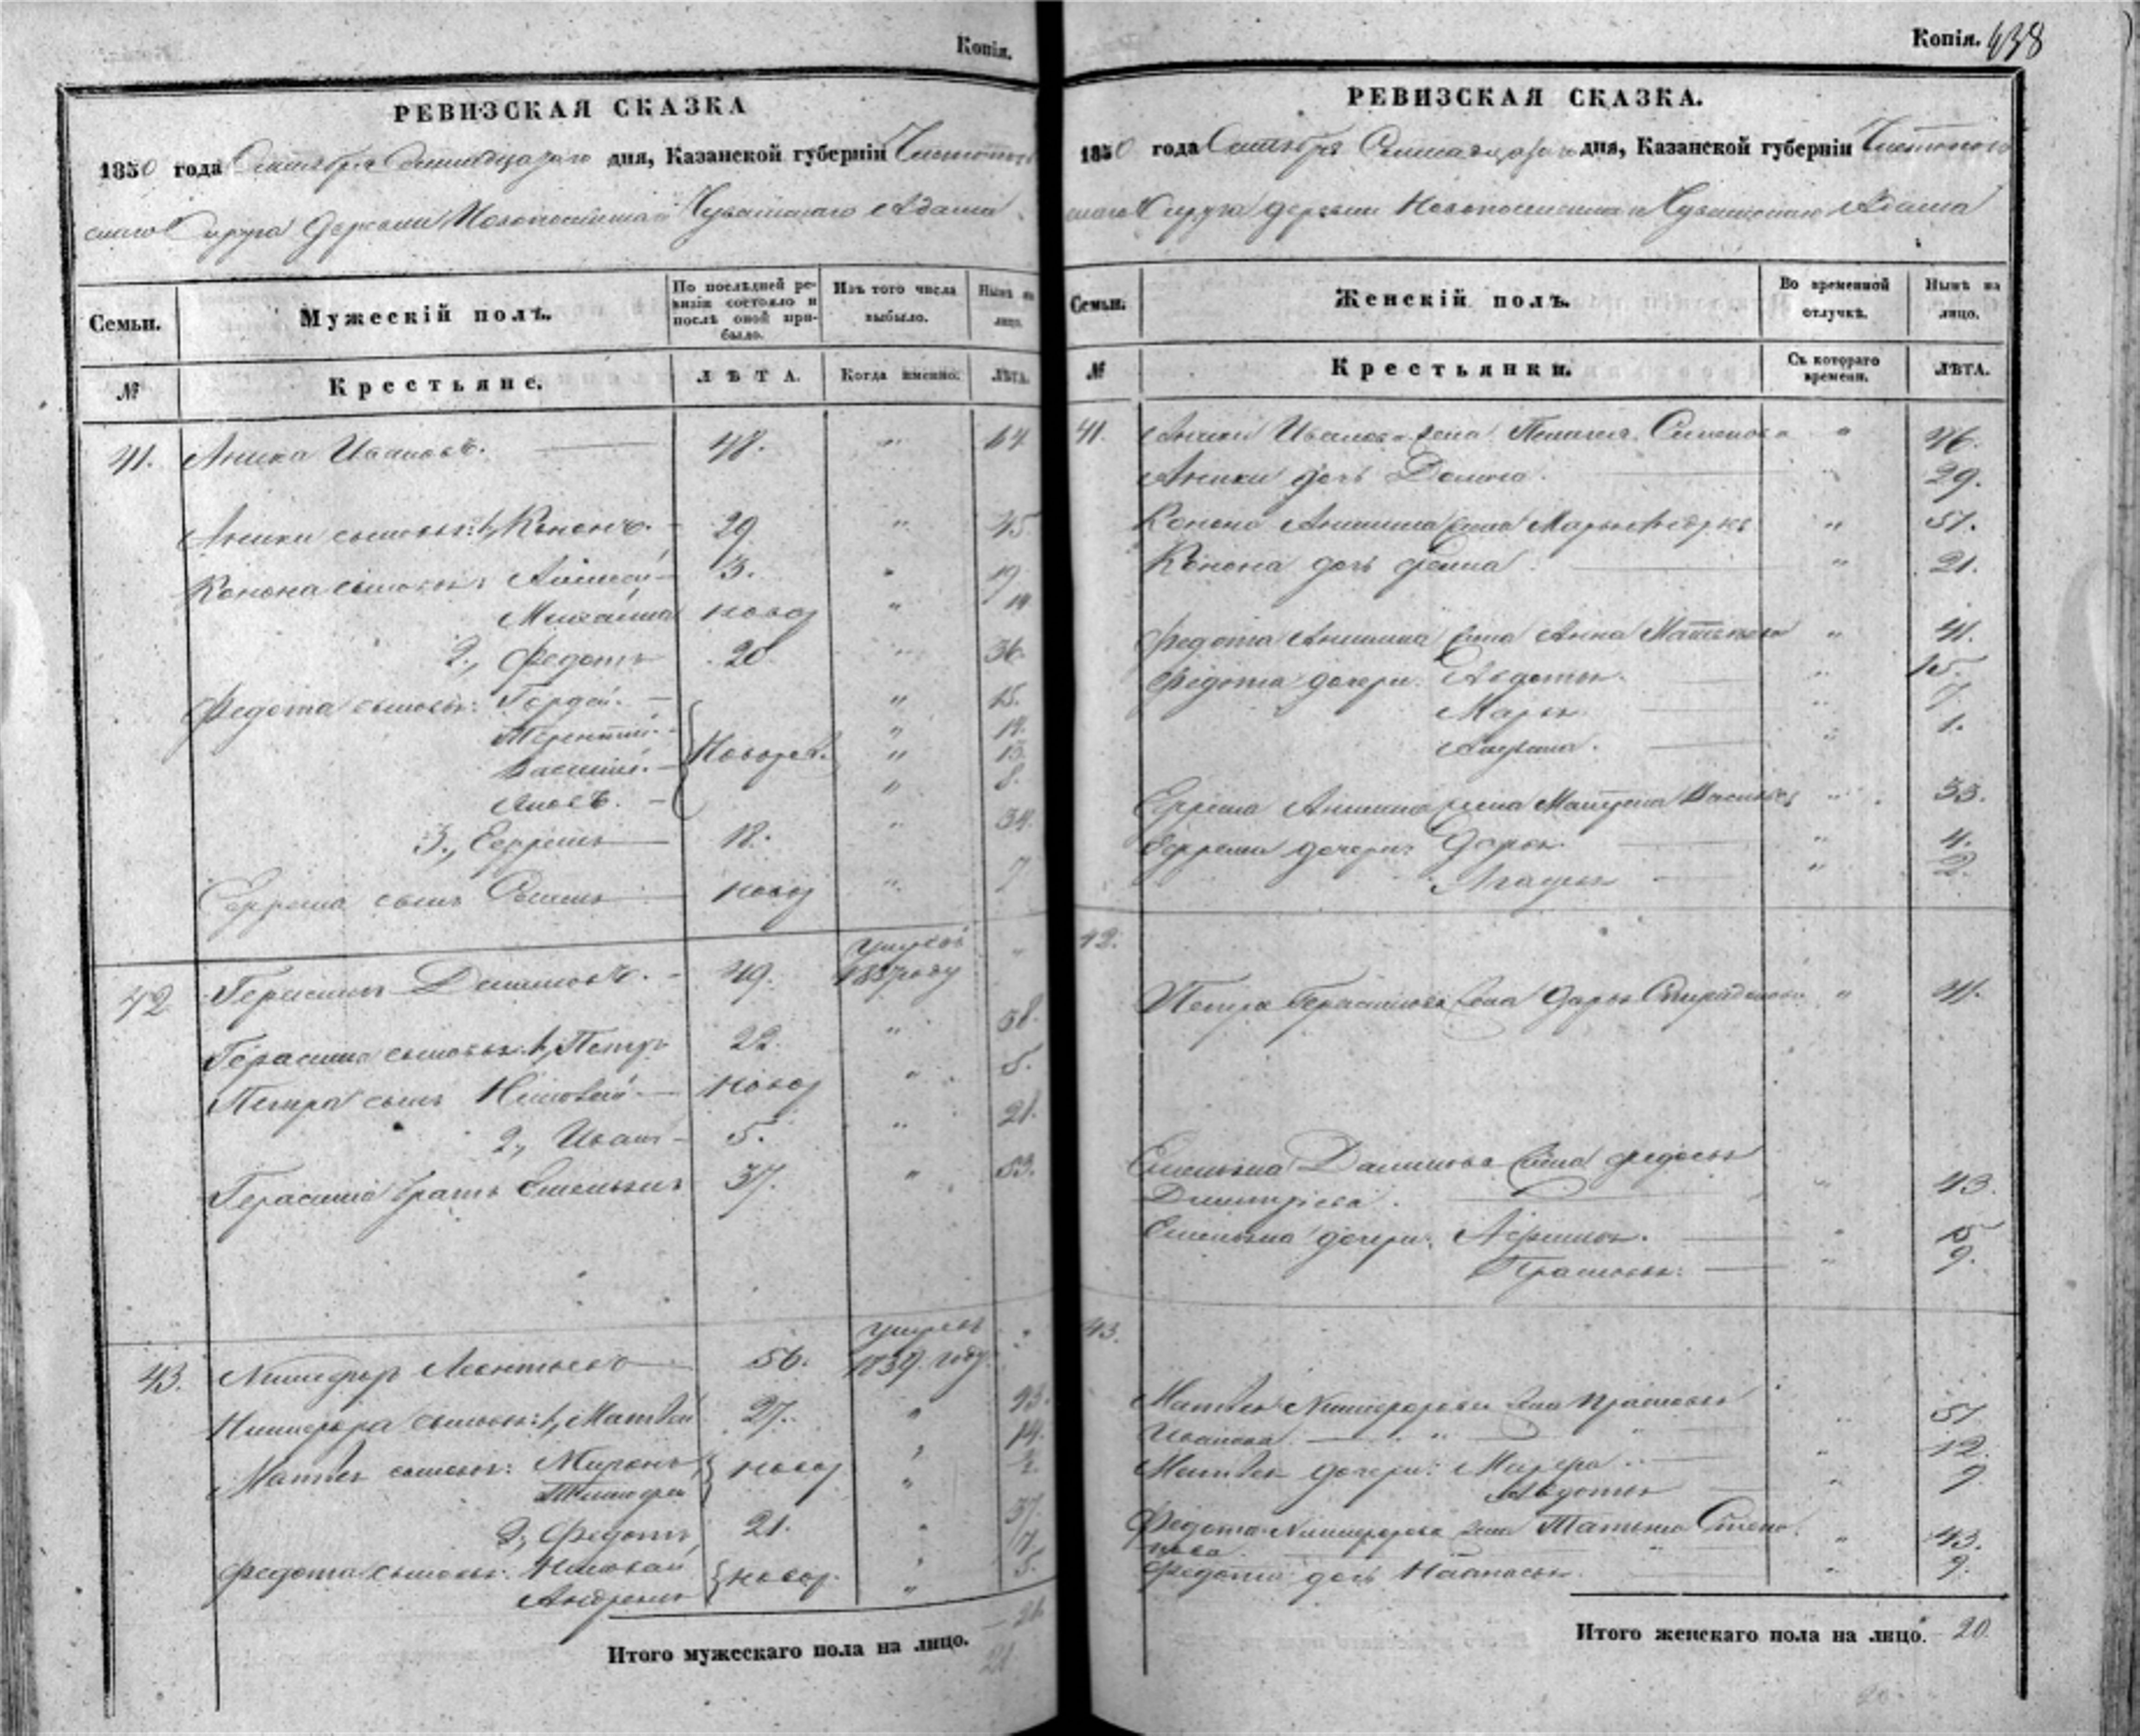 Копія.
РЕВИЗСКАЯ СКАЗКА
1850 года Октября дня, Казанской губерніи Чистополь
скаго Округа Деревни Новопоселенной Чувашскаго Адама
Семьи.
Мужескій полъ.
По послѣдней ре-
визіи состояло и
послѣ оной при-
было.
Изъ того числа
выбыло.
Нынѣ на
лицо.
№
Крестьяне.
ЛѢТА.
Когда именно.
ЛѢТА.
41. Аника Ивановъ. 48. " 64
Аники сыновья: 1, Кононъ. 29 " 45
Конона сыновья: Алексѣй 3. " 19
Михайла новор " 14
2., Федотъ 20 " 36.
Федота сыновья: Гордѣй. " 15.
Терентій. " 14.
Василій. Новорож. " 13
Яковъ. " 8.
3., Ефремъ 18. " 34.
Ефрема сынъ новор " 7
42 Герасимъ Даниловъ. 49. умеръ 1837 году "
Герасима сыновья: 1, Петръ 22. " 38.
Петра сынъ Николай новор " 5.
2., Иванъ 5. " 21.
Герасима братъ Емельянъ 37. " 53.
43. Никифоръ Леонтьевъ 56. умеръ 1839. году "
Никифора сыновья: 1, Матвѣй 27. " 43.
Матвѣя сыновья: Миронъ новор " 14.
Тимофей "
2, Федотъ 21. " 37.
Федота сыновья: Николай новор. " 7
Андреянъ " 5.
Итого мужескаго пола на лицо. 21
21
Копія. 438
РЕВИЗСКАЯ СКАЗКА.
1850 года Октября дня, Казанской губерніи Чистополь
скаго Округа деревни Новопоселенной Чувашскаго Адама
Семьи.
Женскій полъ.
Во временной
отлучкѣ.
Нынѣ на
лицо.
№
Крестьянки.
Съ котораго
времени.
ЛѢТА.
41. Аники Иванова жена Пелагея Семенова " 46.
Аники дочь Домна. " 29.
Конона Аникина жена Марья " 51.
Конона дочь Фекла " 21.
Федота Аникина жена Анна Матвѣева " 41.
Федота дочери: Авдотья. " 15.
Марья " 7.
" 1.
Ефрема Аникина жена Матрена Васильева " 33.
Ефрема дочери: Дарья. " 4.
Агафья " 2.
42.
Петра Герасимова жена Дарья Спиридонова " 41.
Емельяна Данилова жена Федосья
Дмитріева. " 43.
Емельяна дочери: " 15
Прасковья: " 9.
43.
Матвѣя Никифорова жена Прасковья
Иванова " 51
Матвѣя дочери: " 12.
Авдотья " 9
Федота Никифорова жена Татьяна Степа-
нова. " 43.
Федота дочь Настасья. " 9.
Итого женскаго пола на лицо. 20.